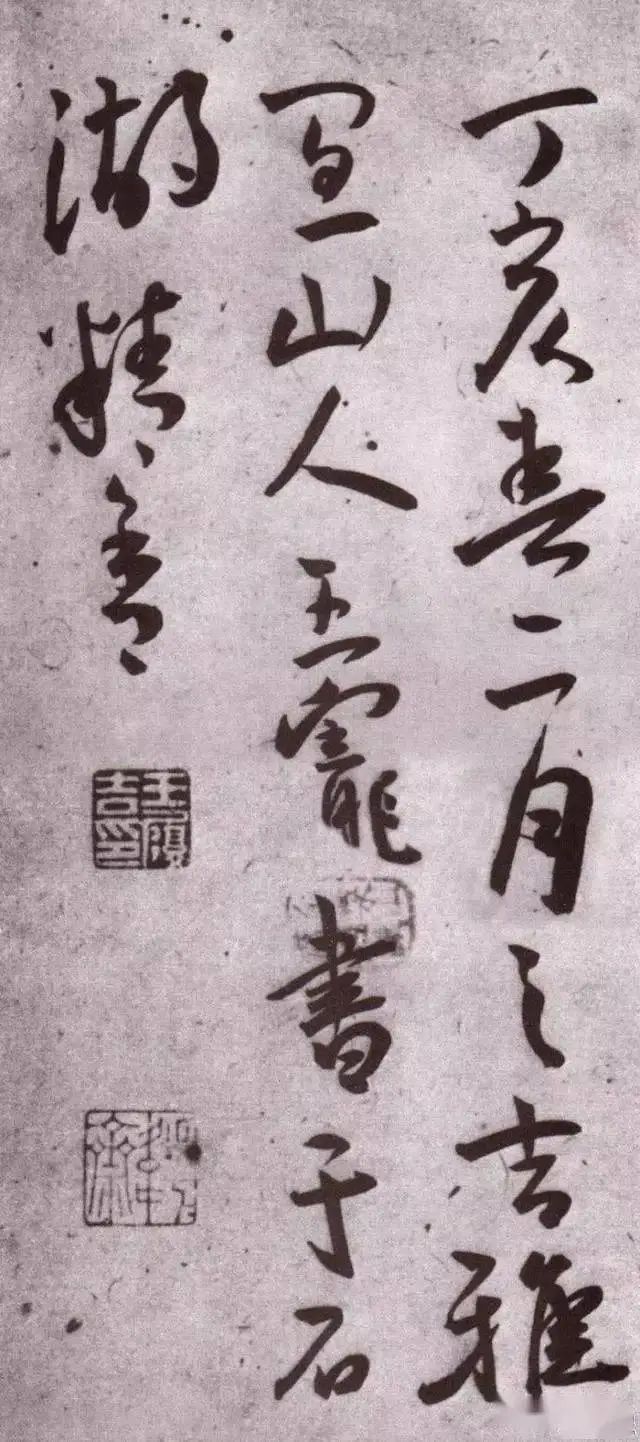 丁亥春二月之吉雅
宜山人王寵書于石
湖精舍
王履吉印